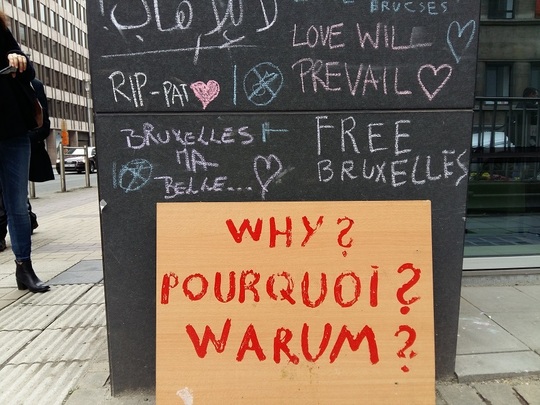 BRUCSES
LOVE WILL
PREVAIL
RIP-PAT
BRUXELLES
MA
BELLE...
FREE
BRUXELLES
WHY?
POURQUOI?
WARUM?